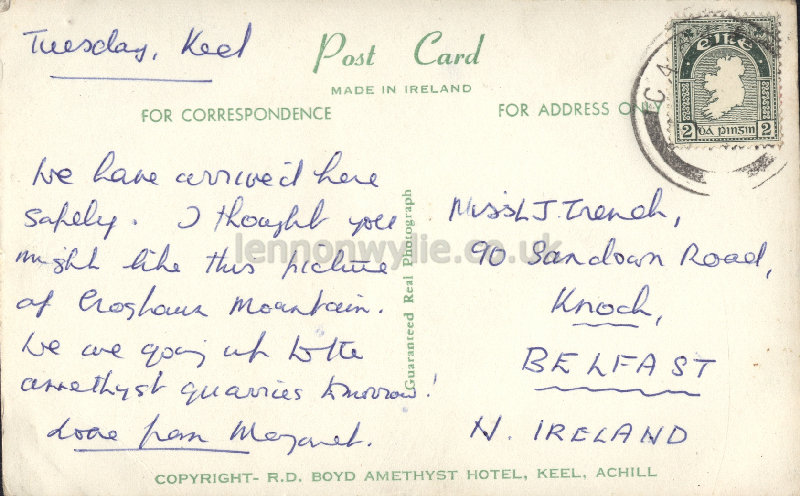 Tuesday, Keel
Post Card
MADE IN IRELAND
FOR CORRESPONDENCE
FOR ADDRESS ONLY
éIRe
2 Dá pinġin 2
We have arrived here
safely. I thought you
might like this picture
of Croghaun Mountain.
We are going up to the
amethyst quarries tomorrow!
Love from Margaret.
Guaranteed Real Photograph
Miss L J Trench,
90 Sandown Road,
Knock,
BELFAST
N. IRELAND
lennonwylie.co.uk
COPYRIGHT- R.D. BOYD AMETHYST HOTEL, KEEL, ACHILL